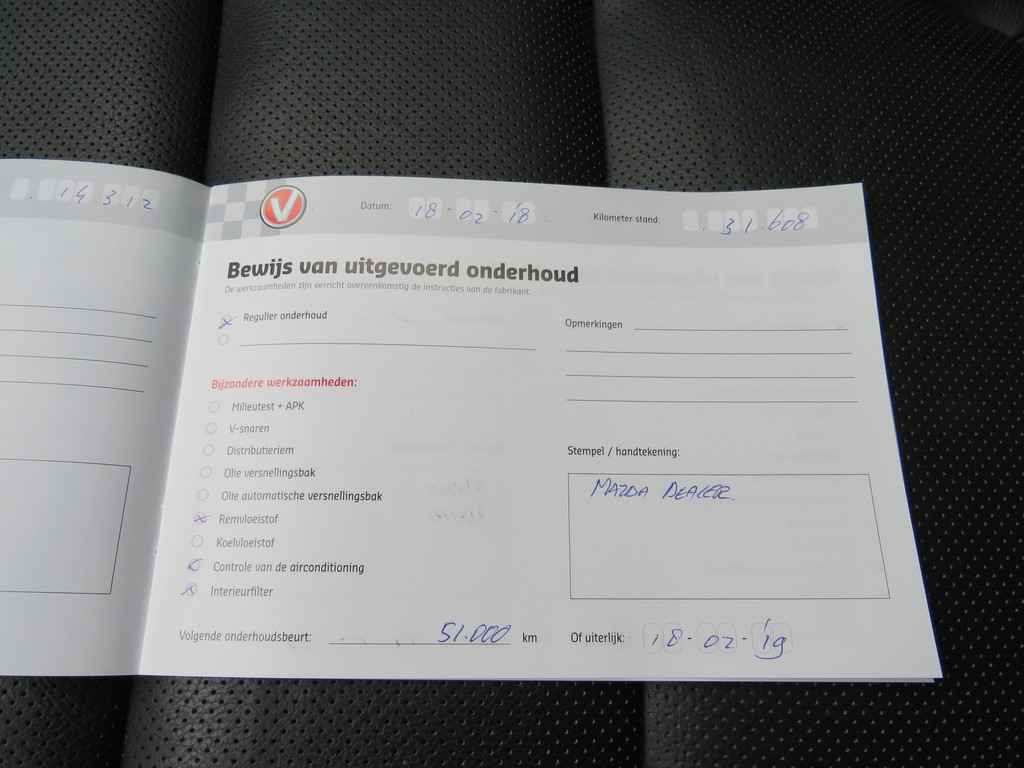 .14.312
V
Datum: 18-02-'18
Kilometer stand: .31.608
Bewijs van uitgevoerd onderhoud
De werkzaamheden zijn verricht overeenkomstig de instructies van de fabrikant.
Regulier onderhoud
Opmerkingen
Bijzondere werkzaamheden:
Milieutest + APK
V-snaren
Distributieriem
Olie versnellingsbak
Olie automatische versnellingsbak
Remvloeistof
Koelvloeistof
Controle van de airconditioning
Interieurfilter
Stempel / handtekening:
MAZDA DEALER.
Volgende onderhoudsbeurt: 51.000 km
Of uiterlijk: 18-02-'19